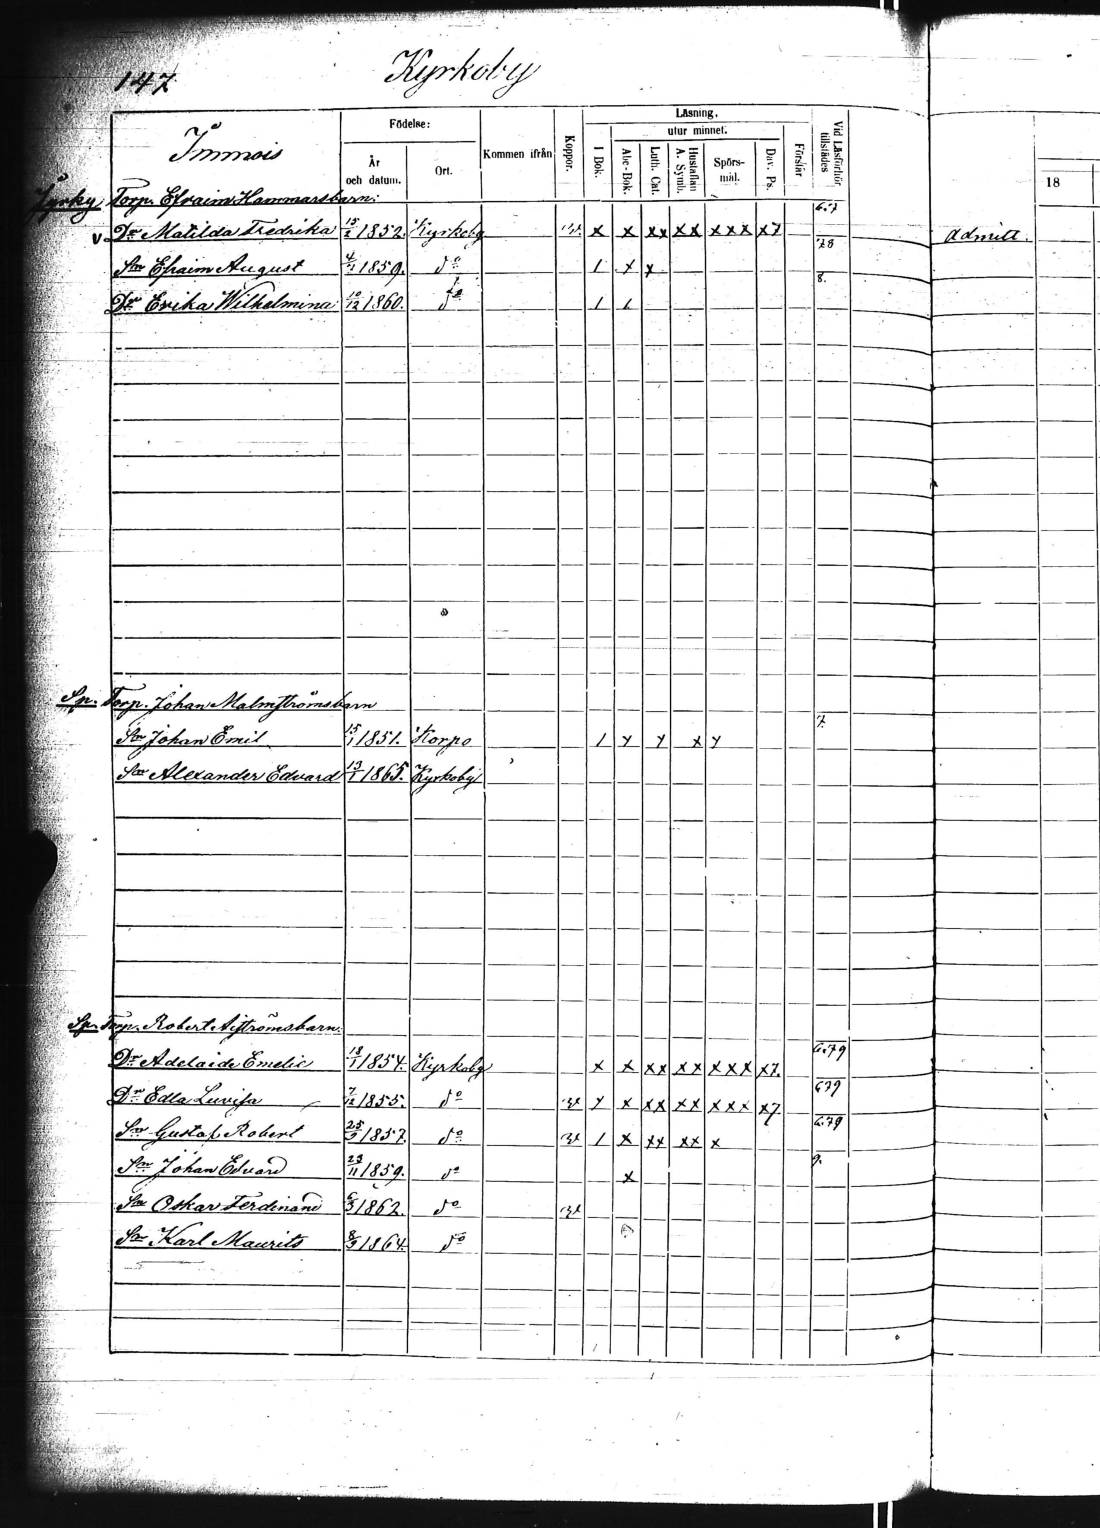 147 Kyrkoby
Immois
Födelse:
År och datum.
Ort.
Kommen ifrån
Koppor.
Läsning,
I Bok.
utur minnet.
Abc-Bok.
Luth. Cat.
Hustaflan A. Symb.
Spörs-mål.
Dav. Ps.
Förstår
Vid Läsförhör tillstädes
18
Torp. Efraim Hammarsbarn:
v Dr Matilda Fredrika 15/2 1852. Kyrkoby x x xx xx xxx x7 6.7 Admitt.
Son Efraim August 4/11 1859. do 1 x x 78
Dr Erika Wilhelmina 10/12 1860. do 1 1 8.
Sp. Torp. Johan Malmströmsbarn
Son Johan Emil 15/1 1851. Korpo 1 y y x y 7
Son Alexander Edvard 13/1 1865. Kyrkoby
Sp. Torp. Robert Aiströmsbarn.
Dr Adelaide Emelie 18/1 1854. Kyrkoby x x xx xx xxx x7. 6.79
Dr Edla Lovisa 7/12 1855. do y x xx xx xxx x7 679
Son Gustaf Robert 25/9 1857. do 1 x xx xx x 6.79
Son Johan Edvard 23/11 1859. do x 9.
Son Oskar Ferdinand 6/3 1862. do
Son Karl Maurits 8/9 1864. do